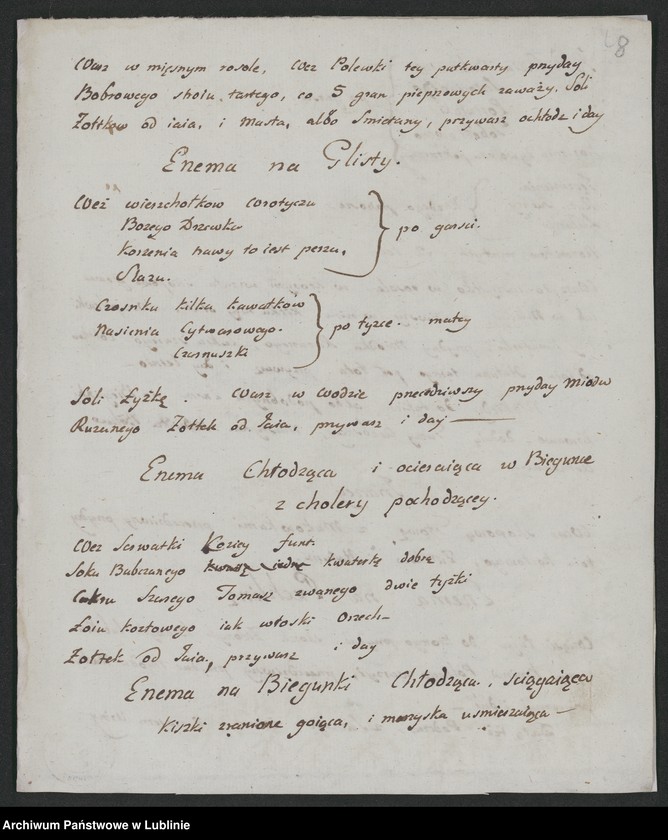 48
Warz w mięsnym rosole, Weź Polewki tey pułkwarty przyday
Bobrowego stroiu tartego, co 5 gran pieprzowych zaważy. Soli
Żołtkow od iaia, i Masła, albo Smietany, przywarz ochłodz i day
Enema na Glisty.
Weź wierzchołkow Wrotyczu
Bożego Drzewka
Korzenia trawy to iest perzu,
Slazu.
po garsci.
Czosnku kilka kawałkow
Nasienia Cytwarowego.
Czarnuszki
po łyżce. małey
Soli Łyżkę. Warz w Wodzie przecedziwszy przyday Miodu
Rużanego Żołtek od Iaia, przywarz i day
Enema Chłodząca i ocieraiąca w Biegunce
z cholery pochodzącey.
Weź Serwatki Koziey funt.
Soku Babczanego kwaterkę dobrą
Cukru Szarego Tomasz zwanego dwie łyżki
Łoiu kozłowego iak włoski Orzech
Żołtek od Iaia, przywarz i day
Enema na Biegunki Chłodząca, sciągaiąca
Kiszki zranione goiąca, i morzyska usmierzaiąca
Archiwum Państwowe w Lublinie